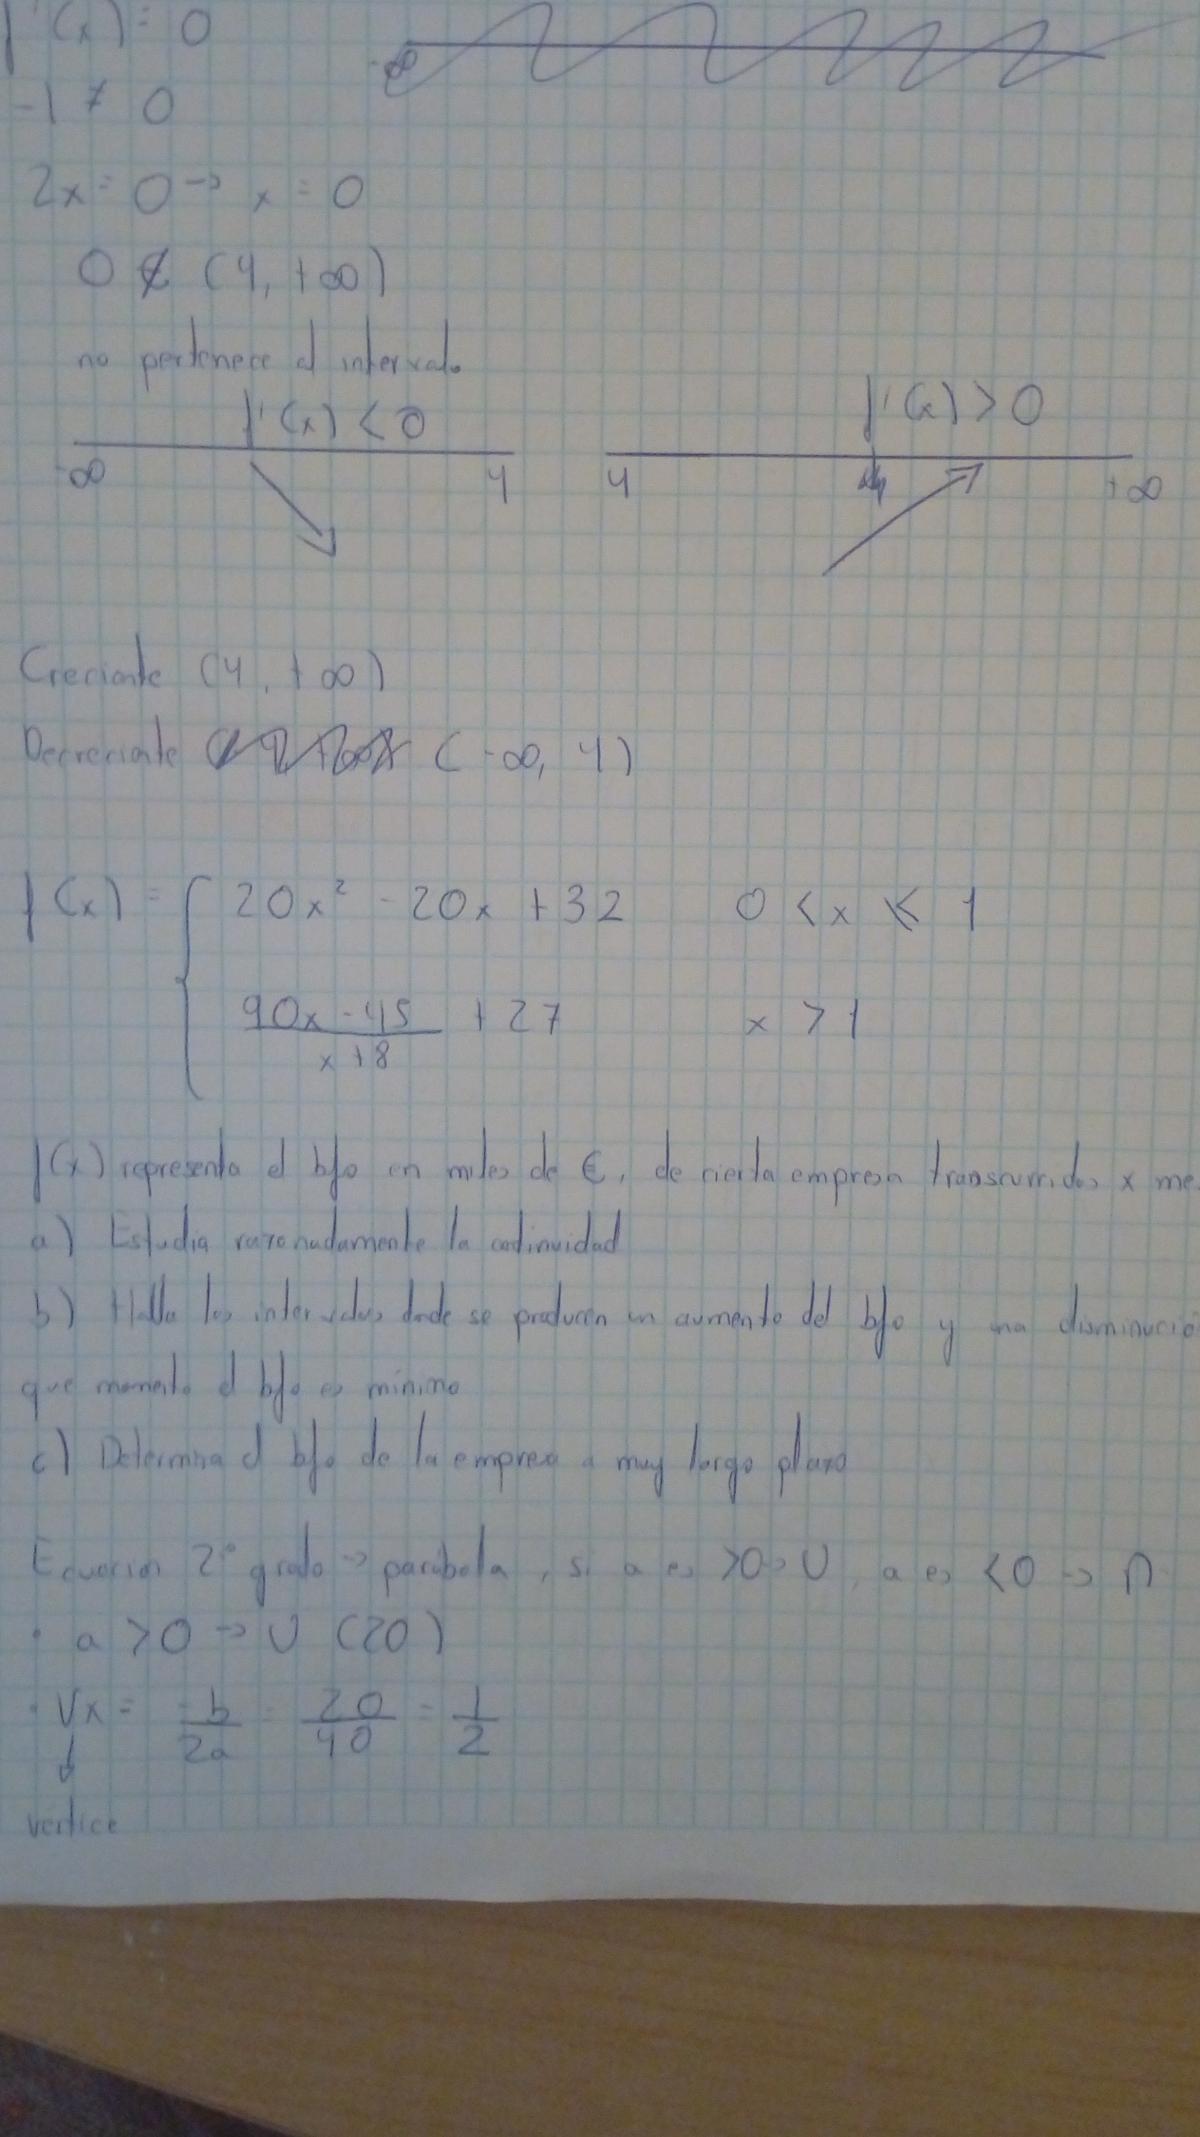 f'(x) = 0
-∞
-1 ≠ 0
2x = 0 → x = 0
0 ∉ (4, +∞)
no pertenece al intervalo
f'(x) < 0
f'(x) > 0
-∞ 4 4 +∞
Creciente (4, +∞)
Decreciente (-∞, 4)
f(x) = { 20x² - 20x + 32 0 < x ≤ 1
90x - 45 / x + 8 + 27 x > 1
f(x) representa el bfo en miles de €, de cierta empresa transcurridos x me
a) Estudia razonadamente la continuidad
b) Halla los intervalos donde se producen un aumento del bfo y una disminució
que momento el bfo es mínimo
c) Determina el bfo de la empresa a muy largo plazo
Ecuación 2º grado → parábola, si a es >0 → U, a es <0 → ∩
· a > 0 → U (20)
· Vx = -b / 2a = 20 / 40 = 1 / 2
↓
vertice